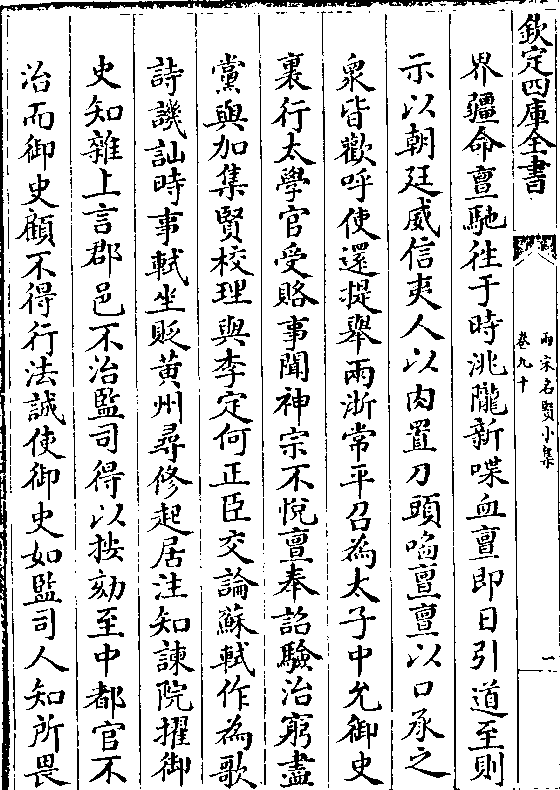 欽定四庫全書
兩宋名賢小集
卷九十
一
界疆命亶馳徃于時洮隴新喋血亶即日引道至則
示以朝廷威信夷人以肉置刀頭啗亶亶以口承之
衆皆歡呼使還提舉兩浙常平召為太子中允御史
裏行太學官受賂事聞神宗不悅亶奉詔驗治窮盡
黨與加集賢校理與李定何正臣交論蘇軾作為歌
詩譏訕時事軾坐貶黄州尋修起居注知諫院擢御
史知雜上言郡邑不治監司得以按劾至中都官不
治而御史顧不得行法誠使御史如監司人知所畏